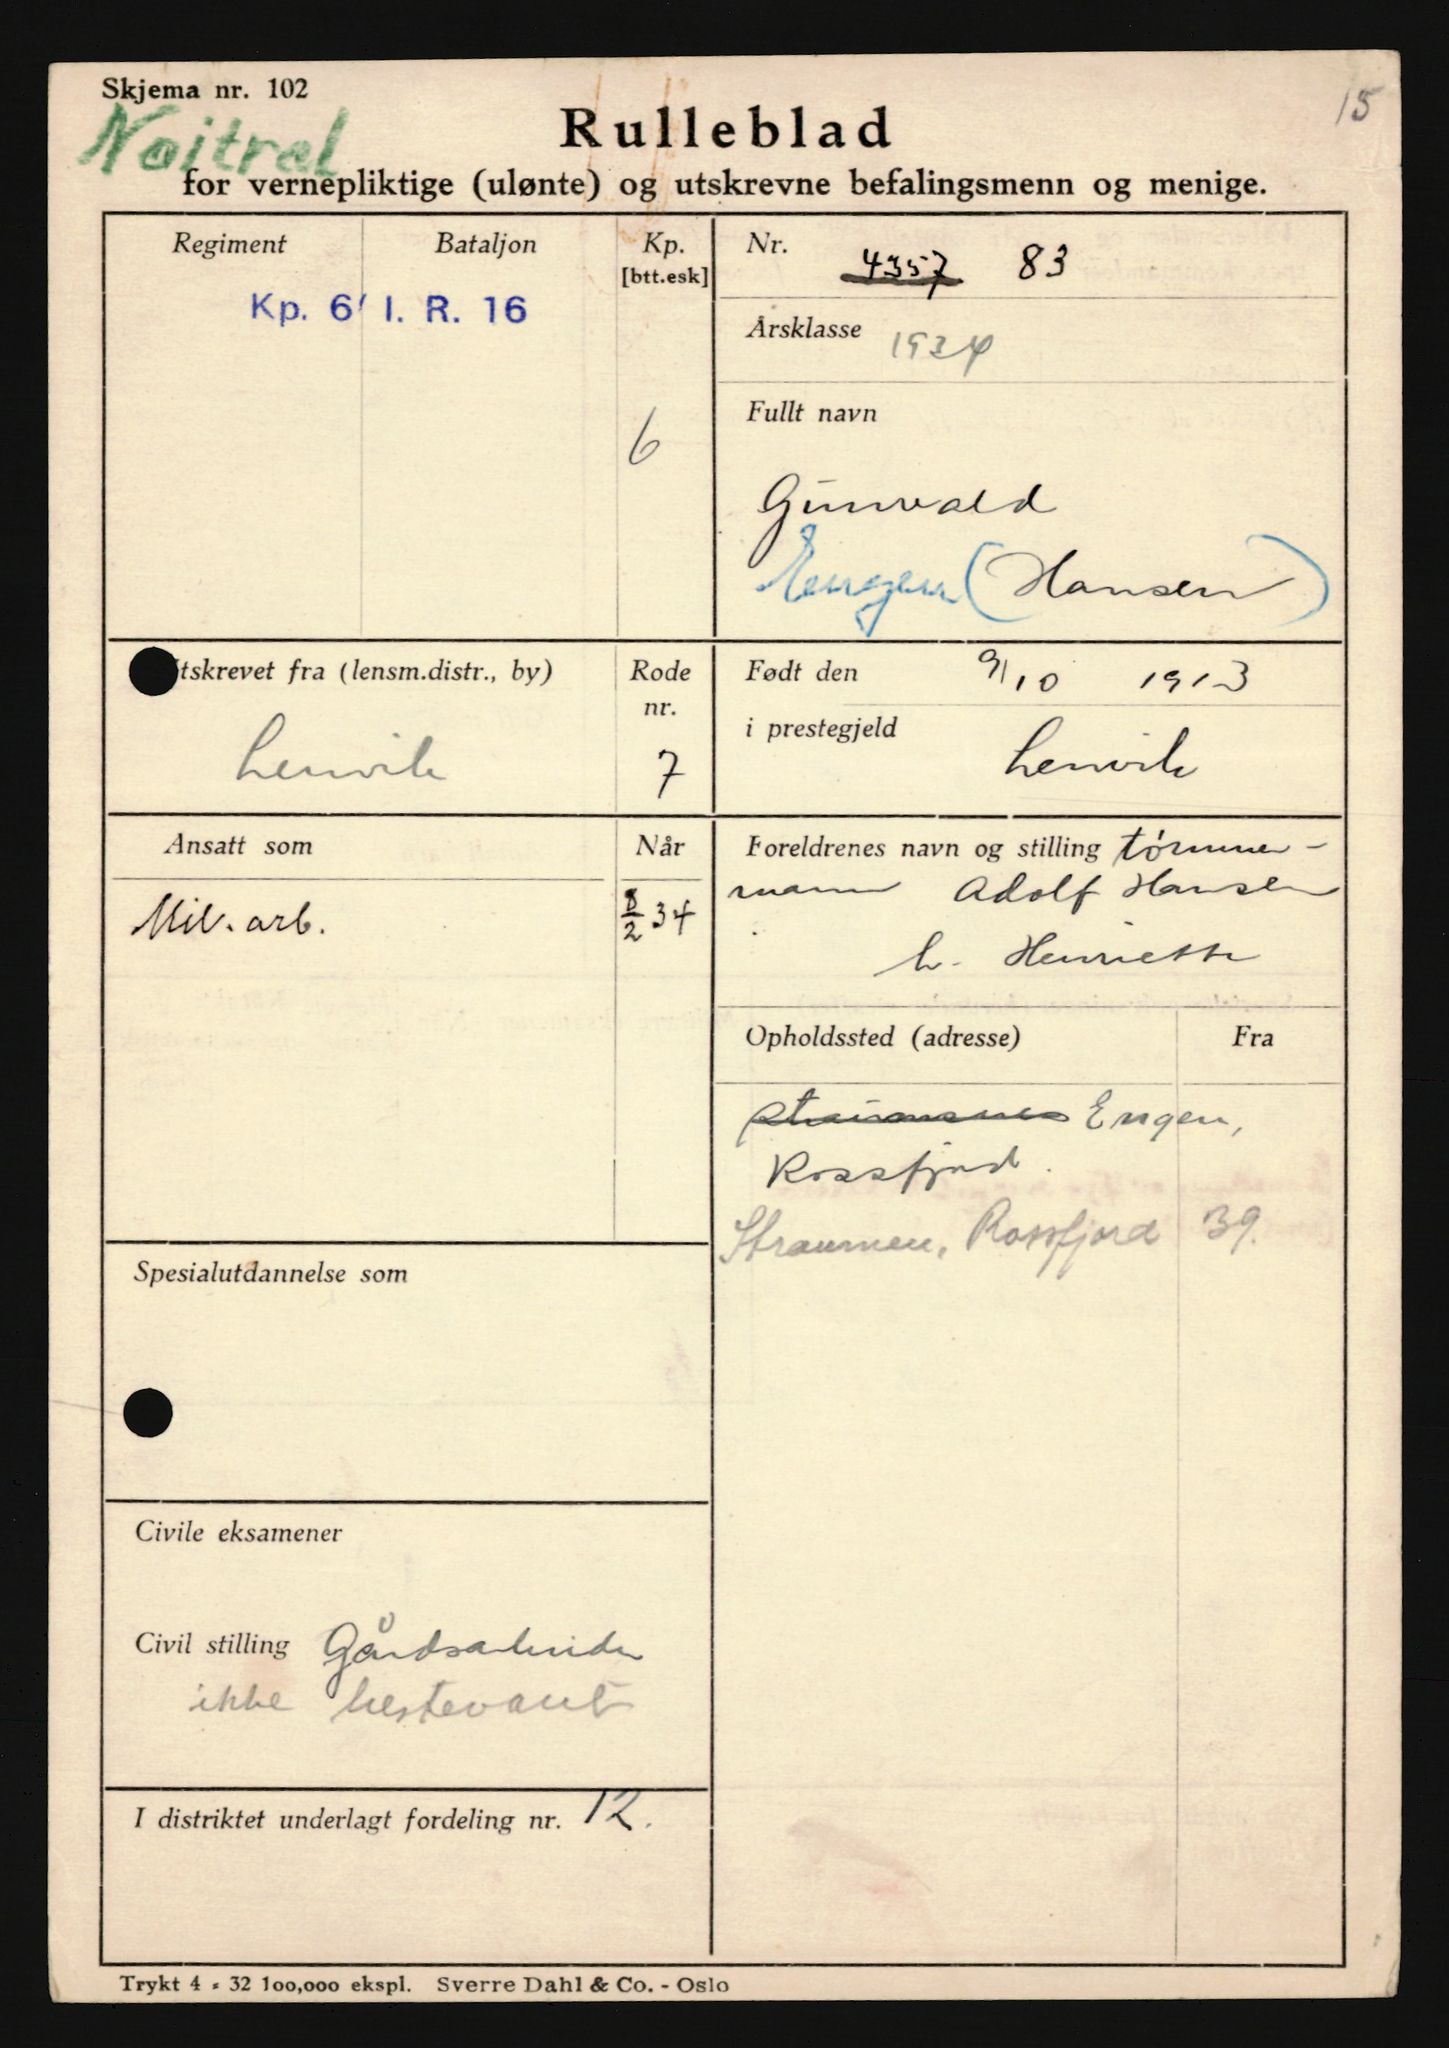 Skjema nr. 102
15
Nøitral
Rulleblad
for vernepliktige (ulønte) og utskrevne befalingsmenn og menige.
Regiment
Bataljon
Kp.
[btt.esk]
Kp. 6 I. R. 16
6
Nr. 4357 83
Årsklasse 1934
Fullt navn
Gunvald
Engen (Hansen)
tskrevet fra (lensm.distr., by)
Lenvik
Rode
nr.
7
Født den 9/10 1913
i prestegjeld Lenvik
Ansatt som
Når
Mil. arb.
34
Foreldrenes navn og stilling tømmer-
mann Adolf Hansen
h. Henriette
Opholdssted (adresse)
Fra
Engen,
Rossfjord.
Straumen, Rossfjord 39.
Spesialutdannelse som
Civile eksamener
Civil stilling Gårdsarbeider
ikke hestevant
I distriktet underlagt fordeling nr. 12.
Trykt 4 - 32 100,000 ekspl. Sverre Dahl & Co. - Oslo